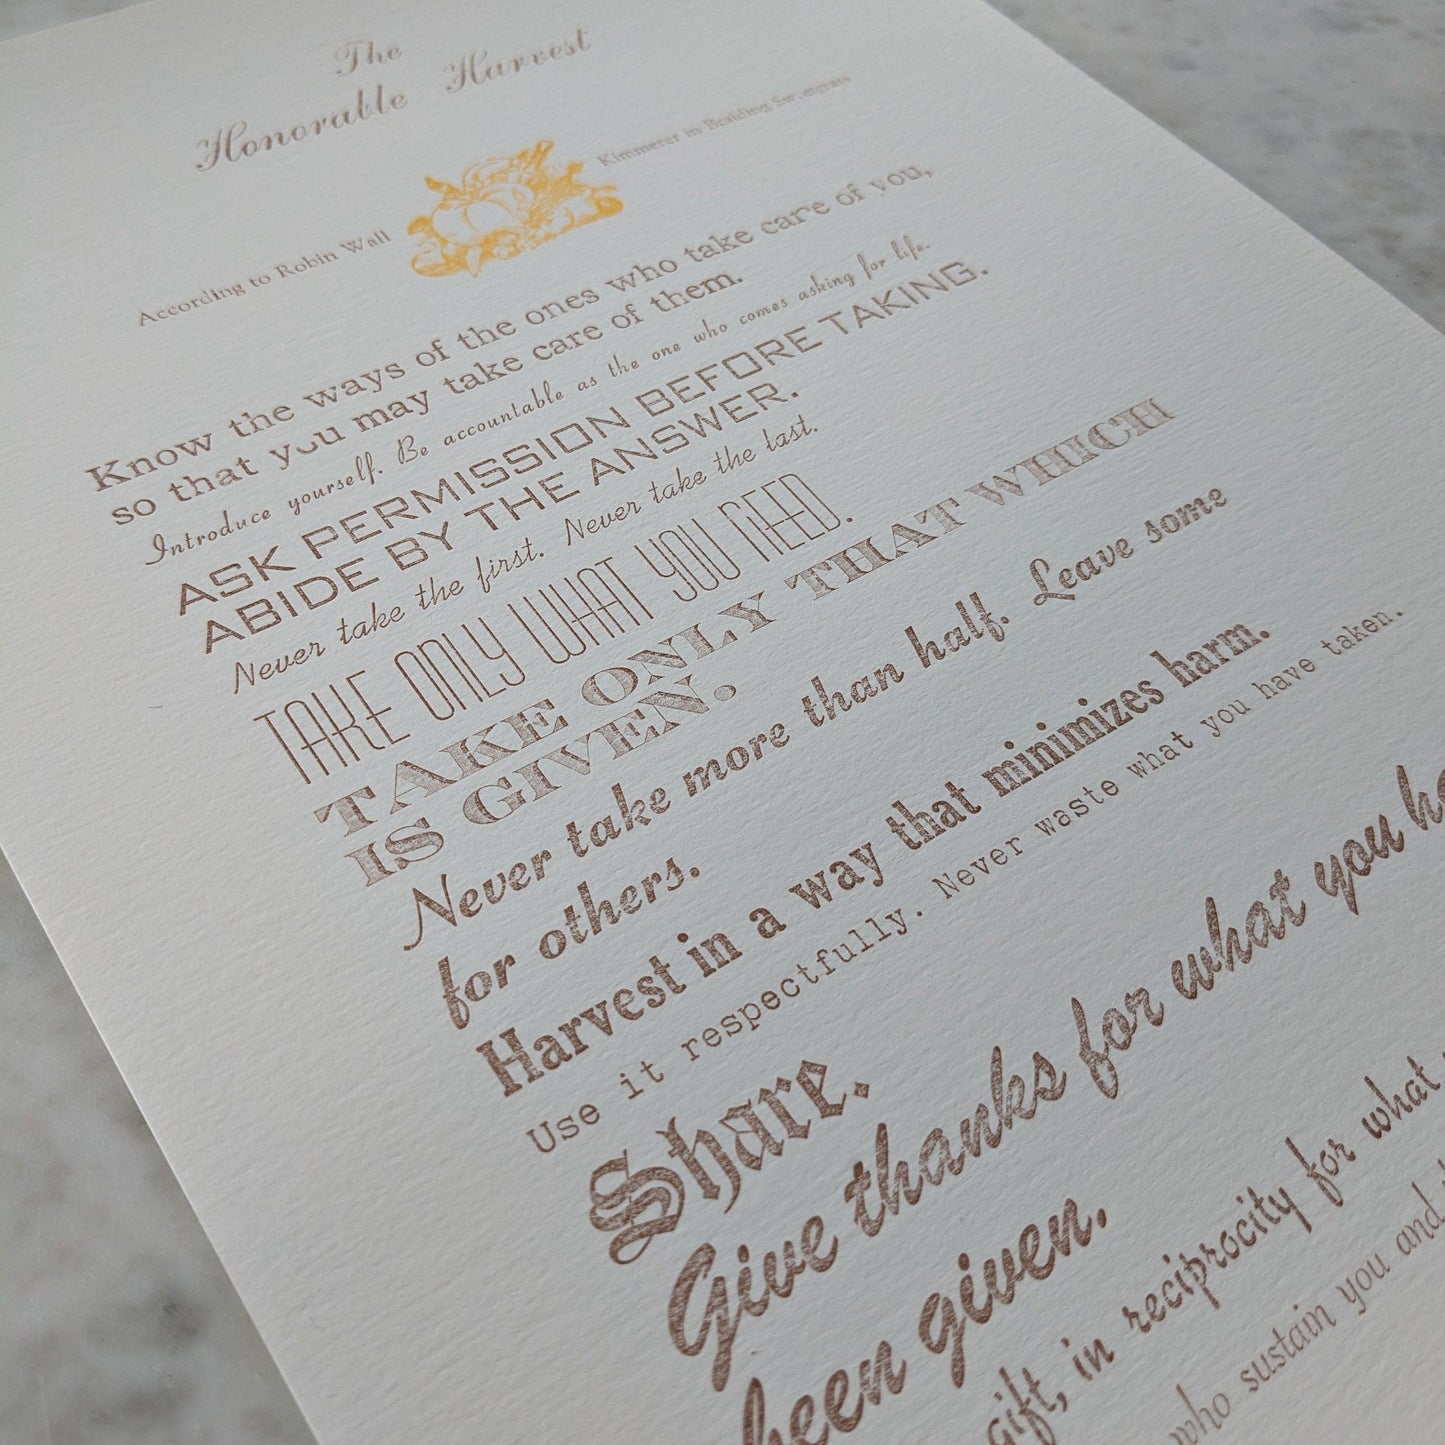 The
Honorable Harvest
According to Robin Wall Kimmerer in Braiding Sweetgrass
Know the ways of the ones who take care of you,
so that you may take care of them.
Introduce yourself. Be accountable as the one who comes asking for life.
ASK PERMISSION BEFORE TAKING.
ABIDE BY THE ANSWER.
Never take the first. Never take the last.
TAKE ONLY WHAT YOU NEED.
TAKE ONLY THAT WHICH
IS GIVEN.
Never take more than half. Leave some
for others.
Harvest in a way that minimizes harm.
Use it respectfully. Never waste what you have taken.
Share.
Give thanks for what you
been given.
gift, in reciprocity for what
who sustain you and